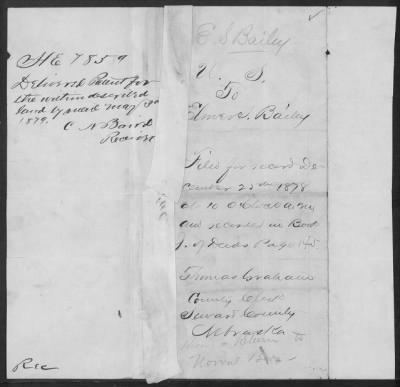 HE 7859
Delivered Patent for
the within described
land by mail May 3d
1879.
C N Baird
Receiver
Rec
E S Bailey
U. S.
To
Elmer S. Bailey
Filed for record De-
cember 25th 1878
at 10 O'Clock a.m.
and recorded in Book
J. of Deeds Page 145
Thomas Graham
County Clerk
Seward County
Nebraska
Return to
Norval Bros